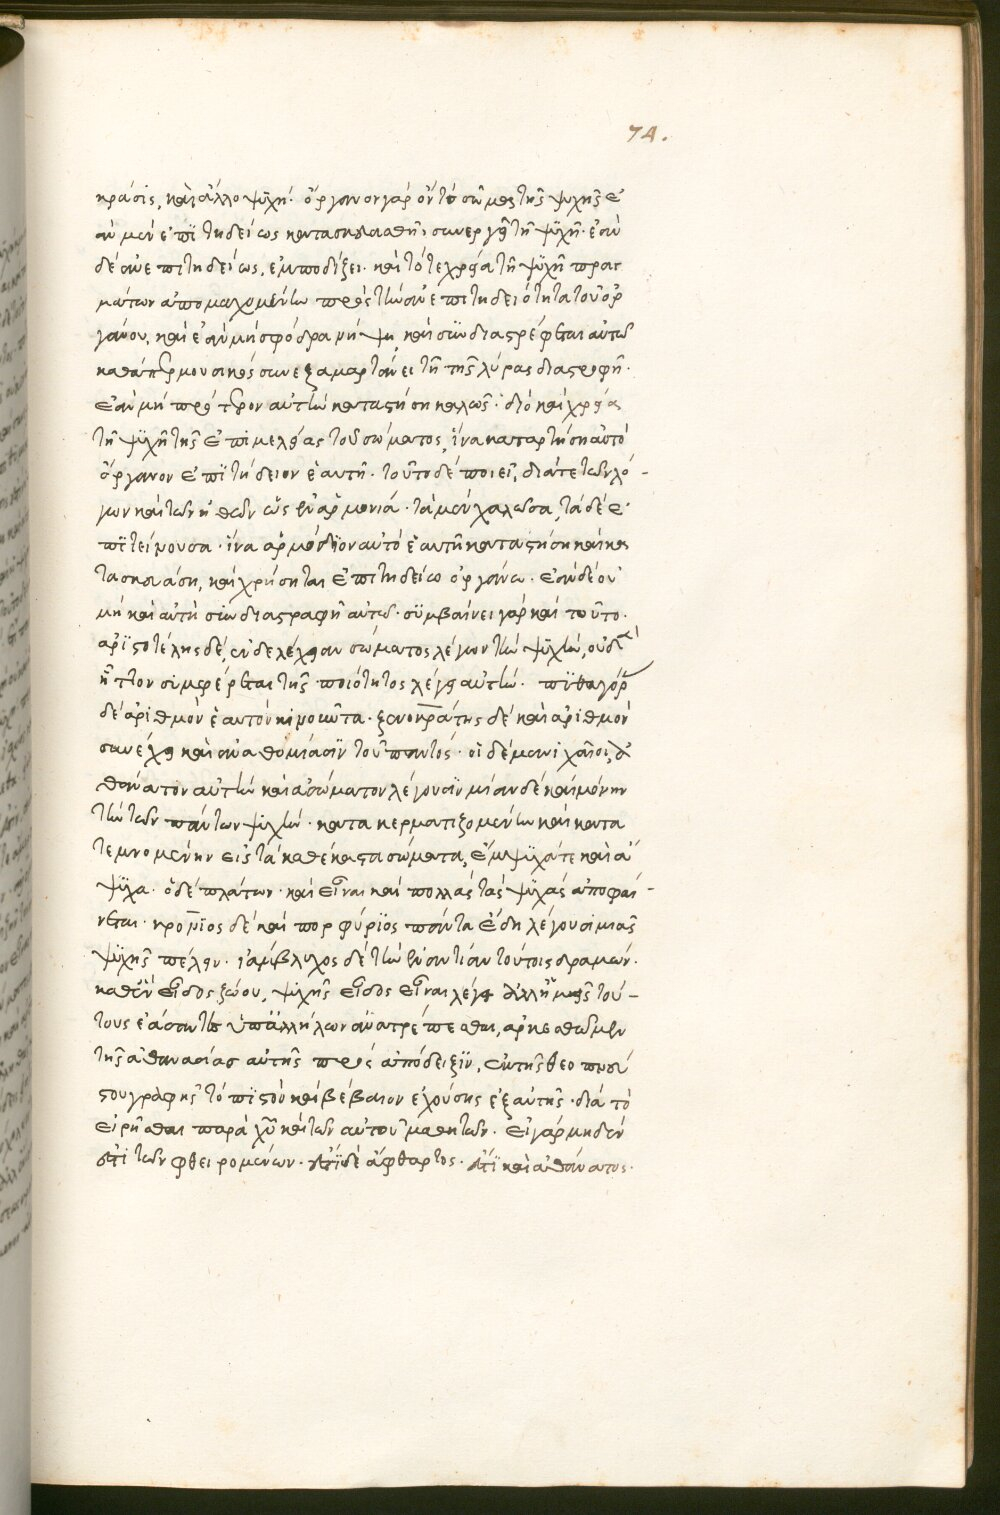 74.
κρᾶσις, καὶ ἄλλο ψϋχή· ὄργανον γάρ ὂν τὸ σῶμα τῆς ψυχῆς ἐ
ὰν μὲν ἐπϊτηδείως κατασκευασθῆ, συνεργεῖ τῆ ψϋχῆ· ἐὰν
δὲ ἀνεπιτηδείως, ἐμποδίζει· καὶ τότε χρεία τῆ ψϋχῆ πραγ
μάτων ἀπομαχομένω πρὸς τὴν ἀνεπιτηδειότητα τοῦ ὀρ
γάνου, καὶ ἐὰν μὴ σφόδρα νήψη, καὶ συνδιαστρέφεται αὐτῶ
καθάπερ μουσικός συνεξαμαρτάνει τῆ τῆς λύρας διαστροφῆ·
ἐὰν μὴ πρότερον αὐτὴν καταστήση καλῶς· διὸ καὶ χρεία
τῆ ψϋχῆ τῆς ἐπιμελείας τοῦ σώματος, ἵνα καταρτήση αὐτὸ
ὄργανον ἐπϊτήδειον ἑαυτῆ· τοῦτο δὲ ποιεῖ, διά τε τῶν λό-
γων καὶ τῶν ἠθῶν ὡς ἐν ἁρμονία· τὰ μὲν χαλῶσα, τὰ δὲ ἐ
πϊτείνουσα· ἵνα ἁρμόδϊον αὐτὸ ἑαυτῆ καταστήση καὶ κα
τασκευάση, καὶ χρήσηται ἐπιτηδείω ὀργάνω· ἐὰν δὲ οὐ
μὴ καὶ αὐτὴ συνδιαστραφῆ αὐτῶ· σϋμβαίνει γὰρ καὶ τοῦτο·
ἀρϊστοτέλης δὲ, ἐνδελέχειαν σώματος λέγων τὴν ψϋχὴν, οὐδὲν
ἧττον συμφέρεται τῆς ποιότητος λέγει αὐτὴν· πϋθαγόρας
δὲ ἀριθμὸν ἑαυτὸν κινοῦντα· ξενοκράτης δὲ καὶ ἀριθμὸν
συνεχῆ καὶ ἀναθυμίασϊν τοῦ παντός· οἱ δὲ μανιχαῖοι, ἀ
θάνατον αὐτὴν καὶ ἀσώματον λέγουσϊν μίαν δὲ καὶ μόνην
τὴν τῶν πάντων ψϋχὴν· κατακερματιζομένην καὶ κατα
τεμνομένην εἰς τὰ καθέκαστα σώματα, ἔμψϋχά τε καὶ ἄ
ψϋχα· ὁ δὲ πλάτων· καὶ εἶναι καὶ πολλὰς τὰς ψϋχὰς ἀποφαί-
νεται· δὲ καὶ πορφύρϊος πάντα ἔδη λέγουσι μιᾶς
ψϋχῆς πέλειν· ϊάμβλυχος δὲ τὴν ἐναντίαν τούτοις δραμών·
καθὲν εἶδος ζώου, ψϋχῆς εἶδος εἶναι λέγει ἀλλ' ἡμεῖς τού-
τους ἐάσαντες ὑπ' ἀλλήλων ἀνατρέπεσθαι, ἀρκεσθῶμεν
τῆς ἀθανασίασ αὐτῆς πρὸς ἀπόδειξϊν, ἐκ τῆς θεοπνεύ
στου γραφῆς τὸ πϊστὸν καὶ βέβαιον ἐχούσης ἐξ αὐτῆς· διὰ τὸ
εἰρῆσθαι παρὰ χυ καὶ τῶν αὐτοῦ μαθητῶν· εἰ γὰρ μηδὲν
ἐστὶ τῶν φθειρομένων· ἐστὶ δὲ ἄφθαρτος· ἐστὶ καὶ ἀθάνατος·